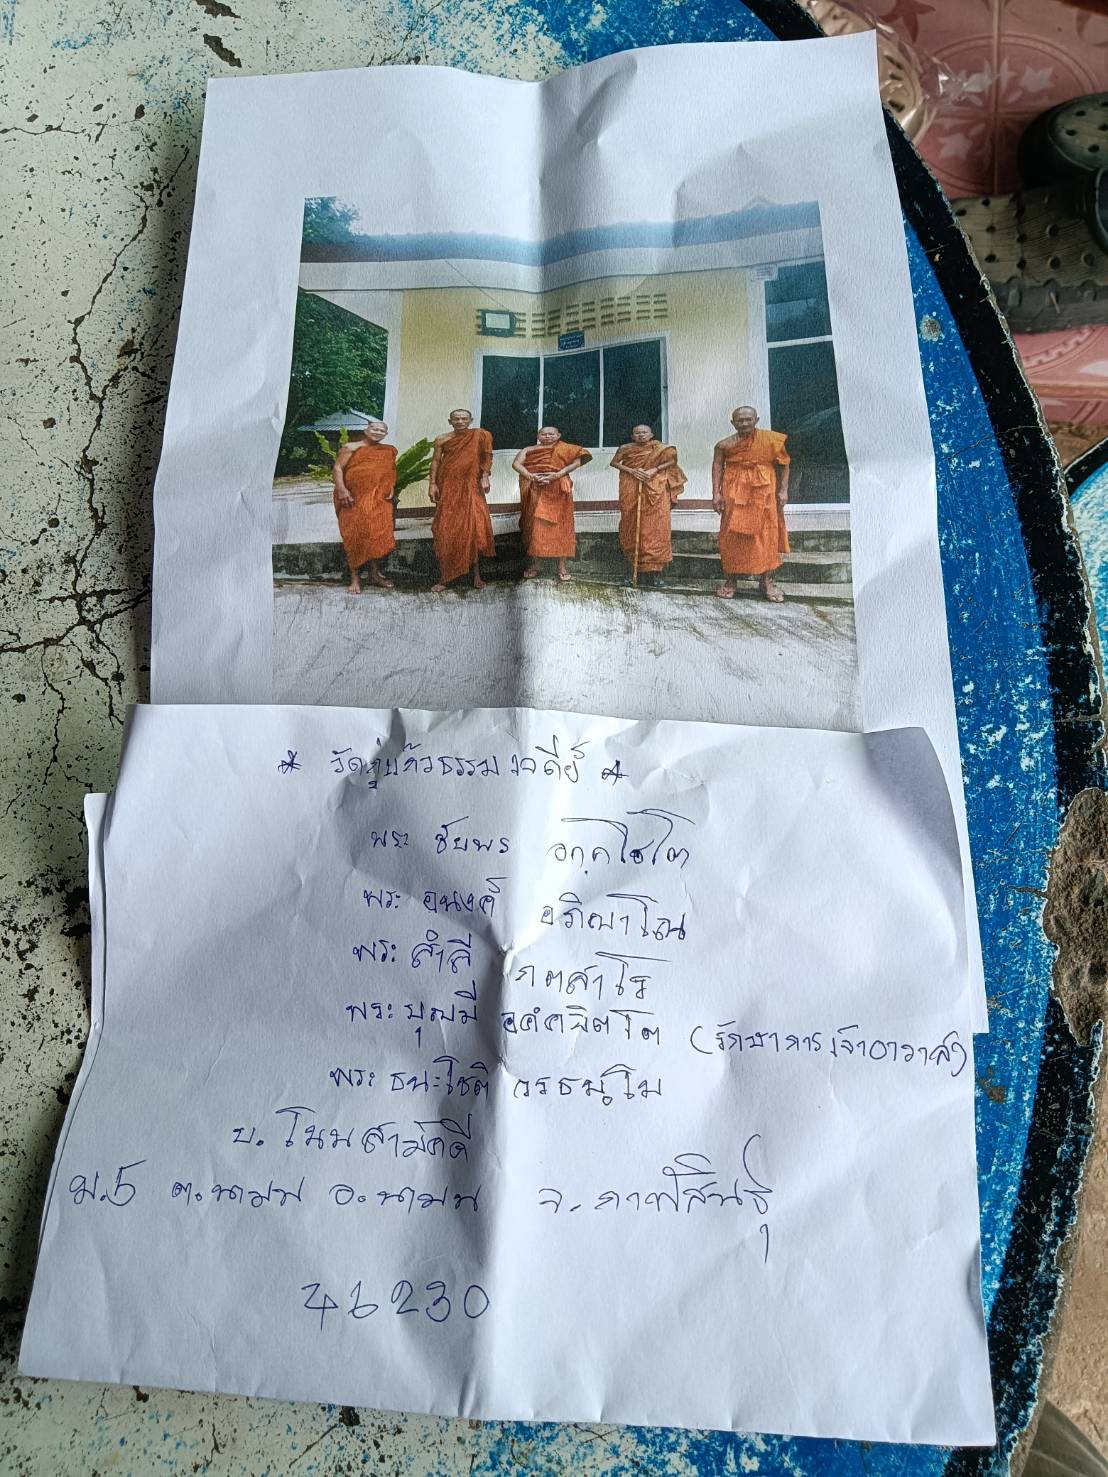 * วัดภูแก้วธรรมเจดีย์ *
พระ ชัยพร
พระ อนงค์ อภิญาโณ
พระ สำลี กตสาโร
พระ บุญมี (รักษาการเจ้าอาวาส)
พระ ธนะโชติ วรธมฺโม
บ. โนนสามัคคี
ม.5 ต.นามน อ.นามน จ.กาฬสินธุ์
46230